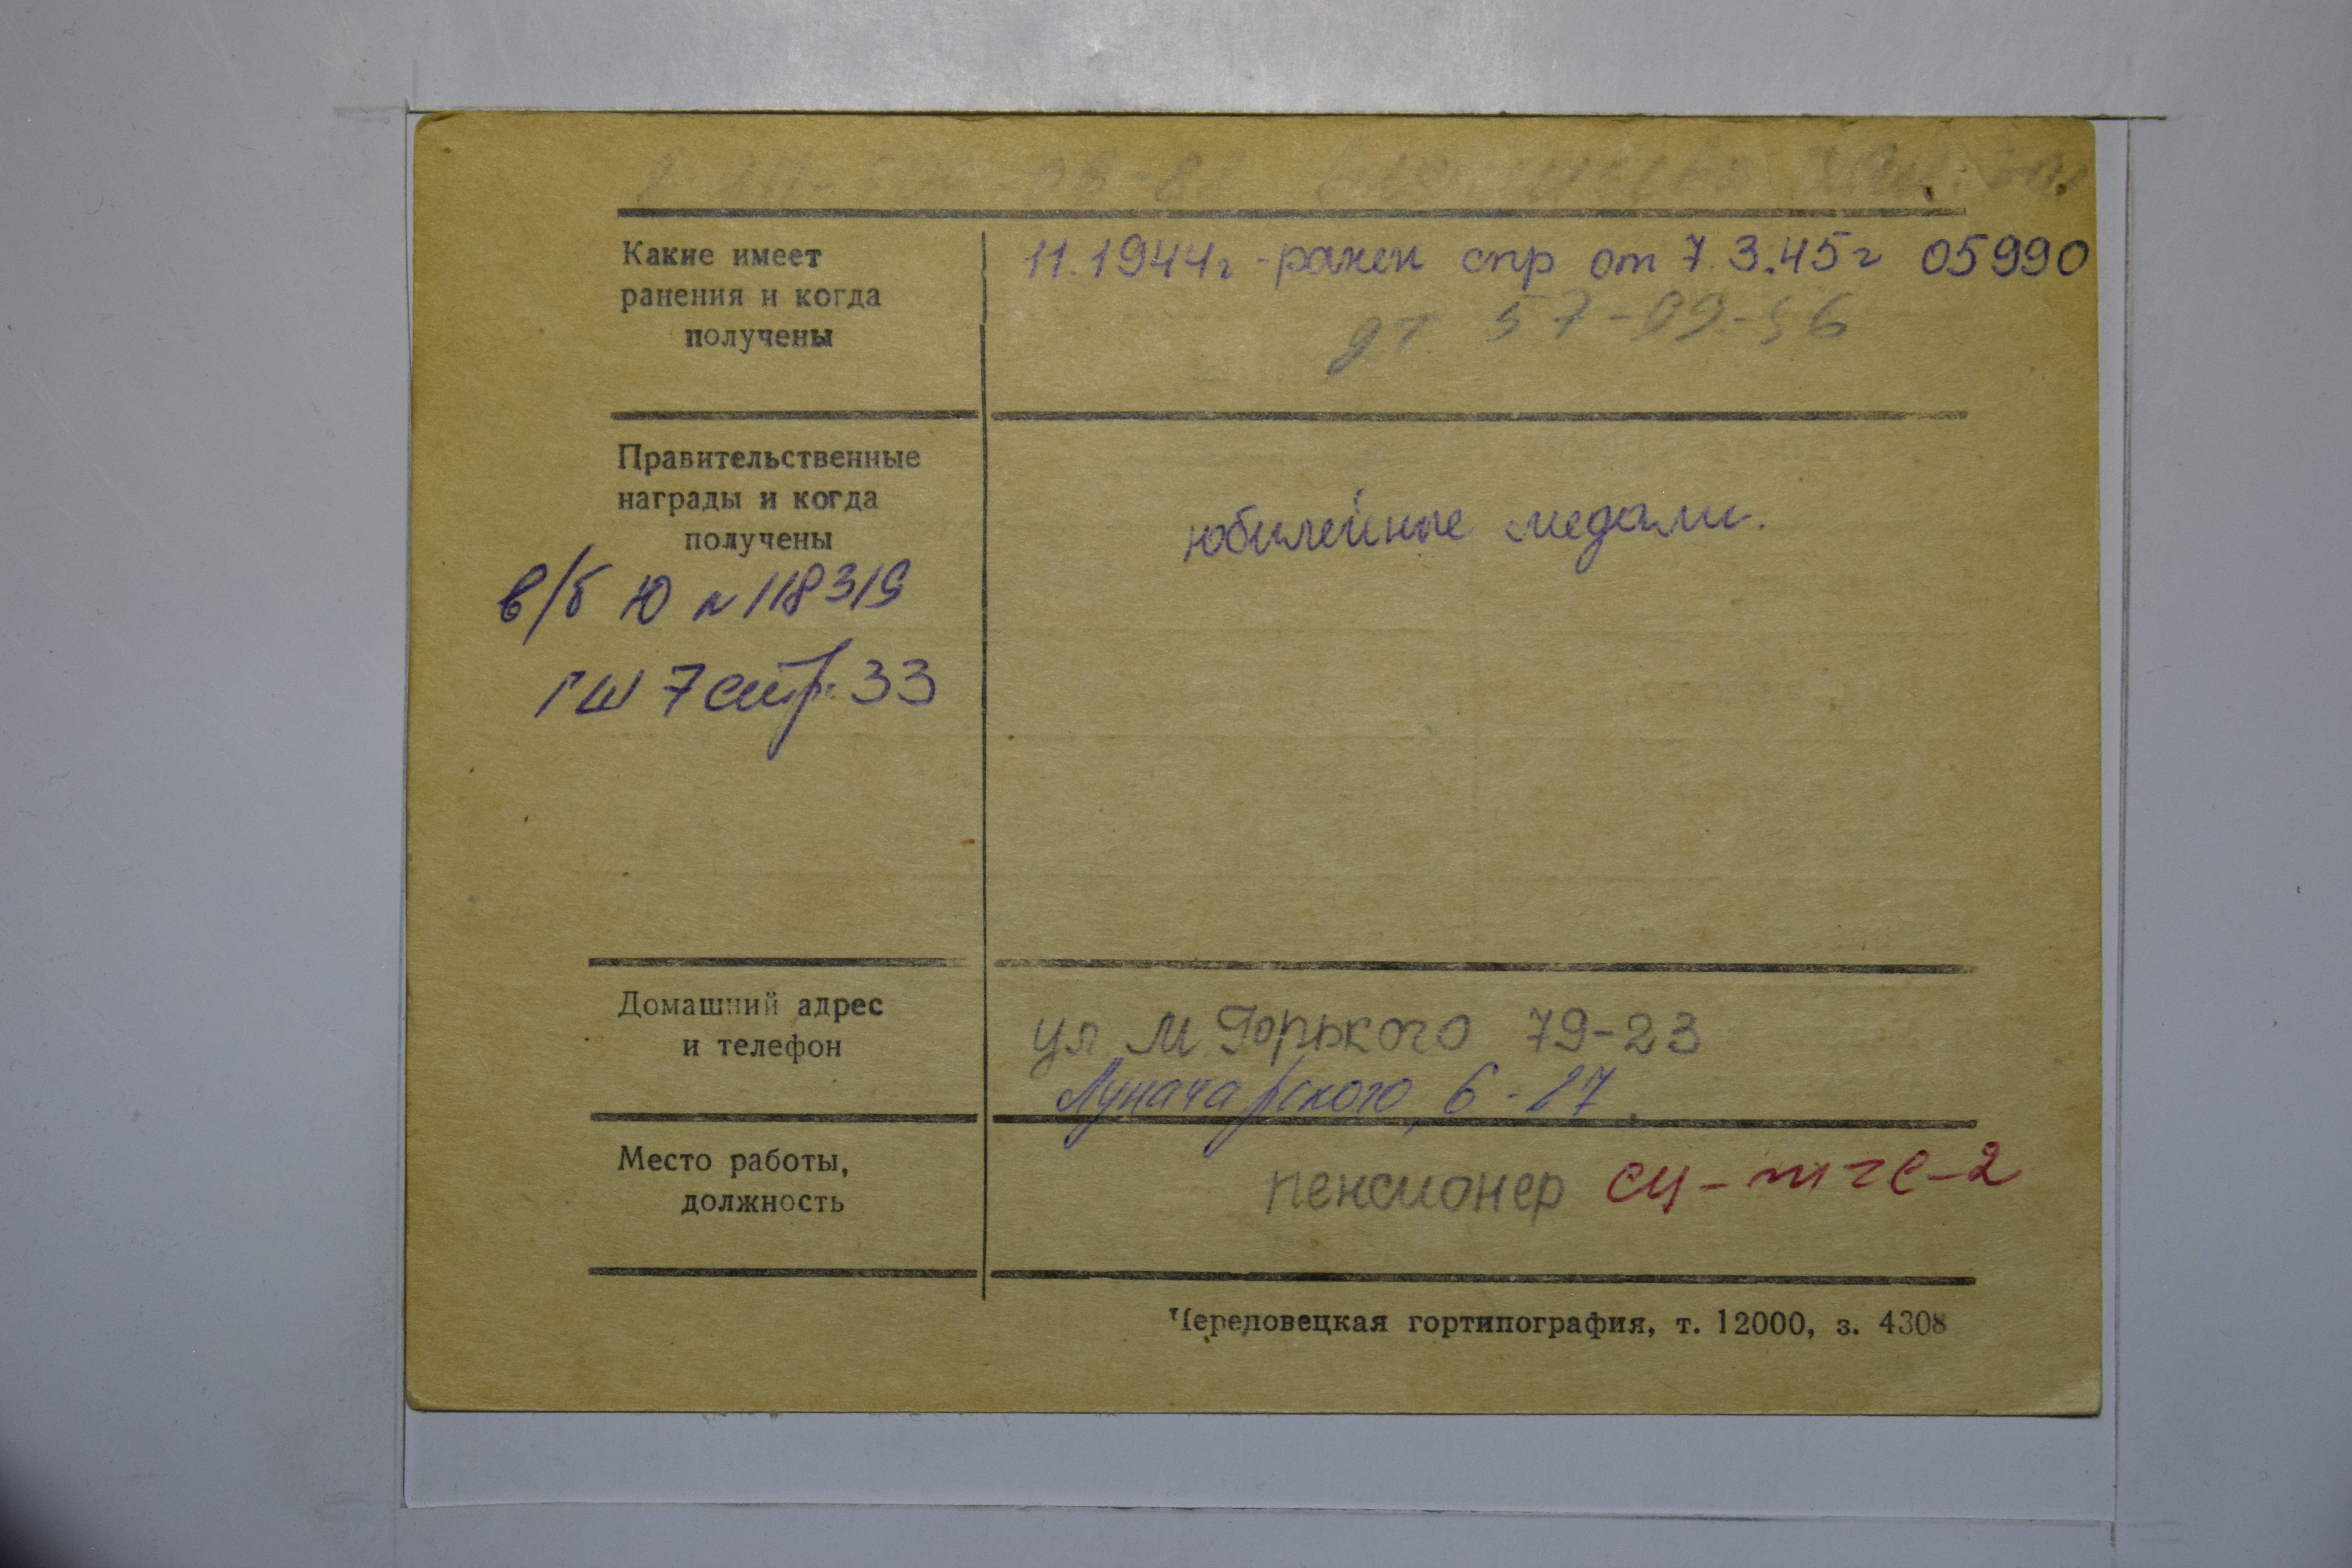 Какие имеет
ранения и когда
получены
11.1944г - ранен спр от 7.3.45г 05990
57-09-56
Правительственные
награды и когда
получены
юбилейные медали.
в/б Ю № 118319
ГШ 7 стр. 33
Домашний адрес
и телефон
ул М Горького 79-23
Луначарского, 6-27.
Место работы,
должность
пенсионер
Череповецкая гортипография, т. 12000, з. 4308